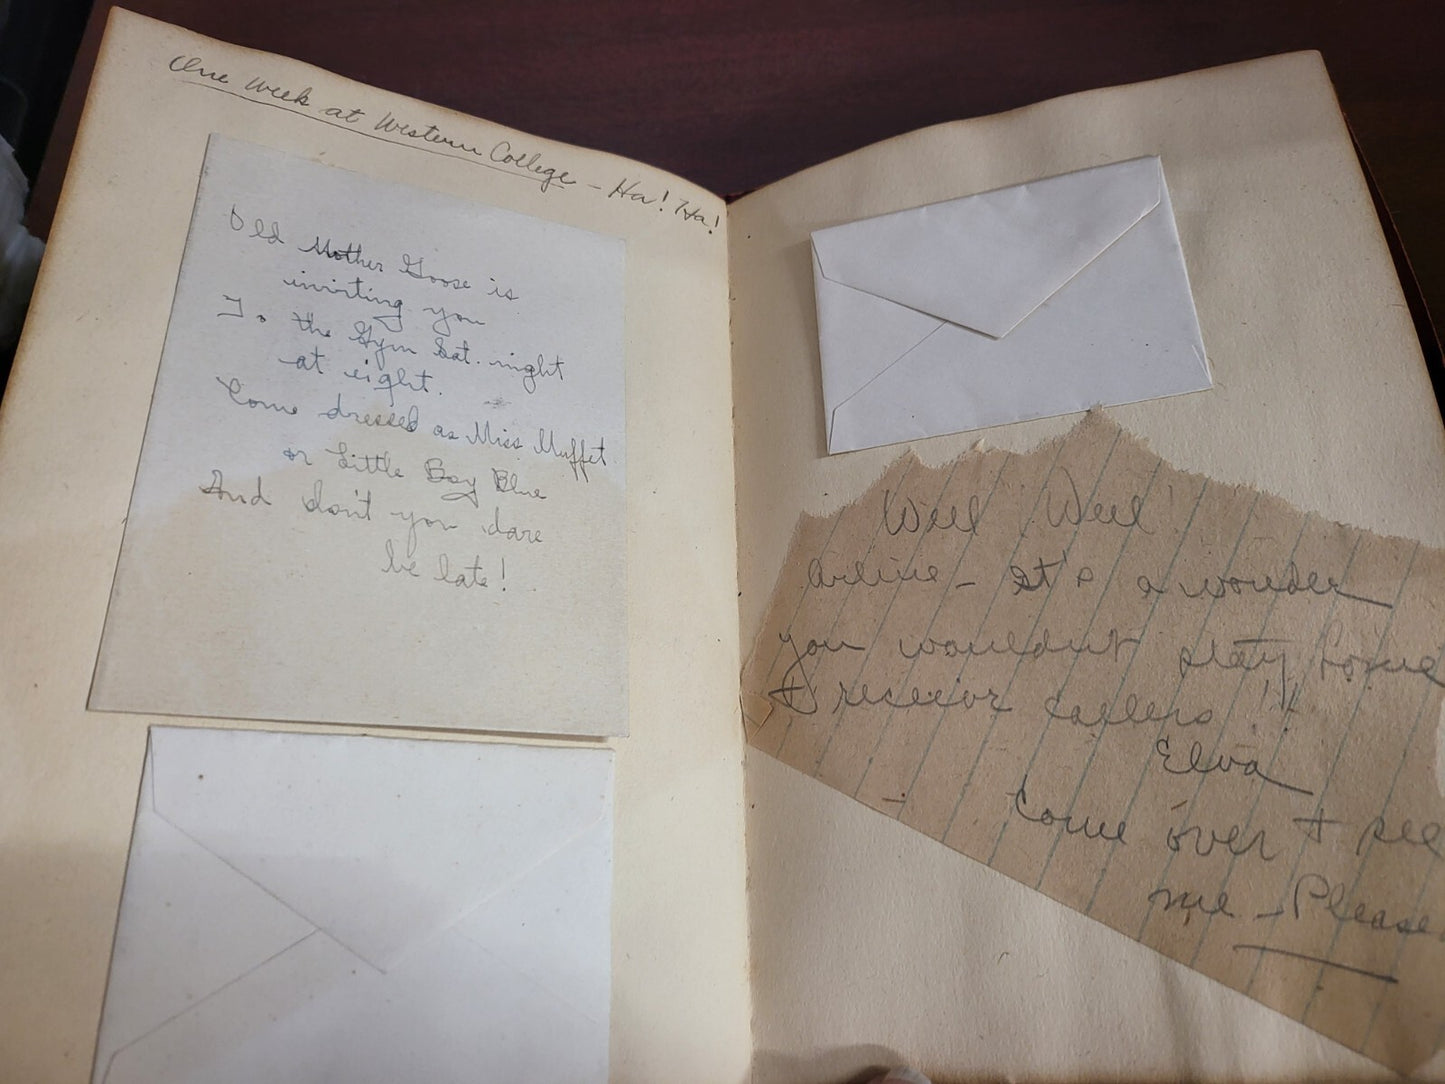 One Week at Western College - Ha! Ha!
Old Mother Goose is
inviting you
To the Gym Sat. night
at eight.
Come dressed as Miss Muffet
or Little Boy Blue
And don't you dare
be late!
Well Well!
Arline - It's a wonder
you wouldn't stay home
& receive callers!!
Elva
Come over & see
me - Please.